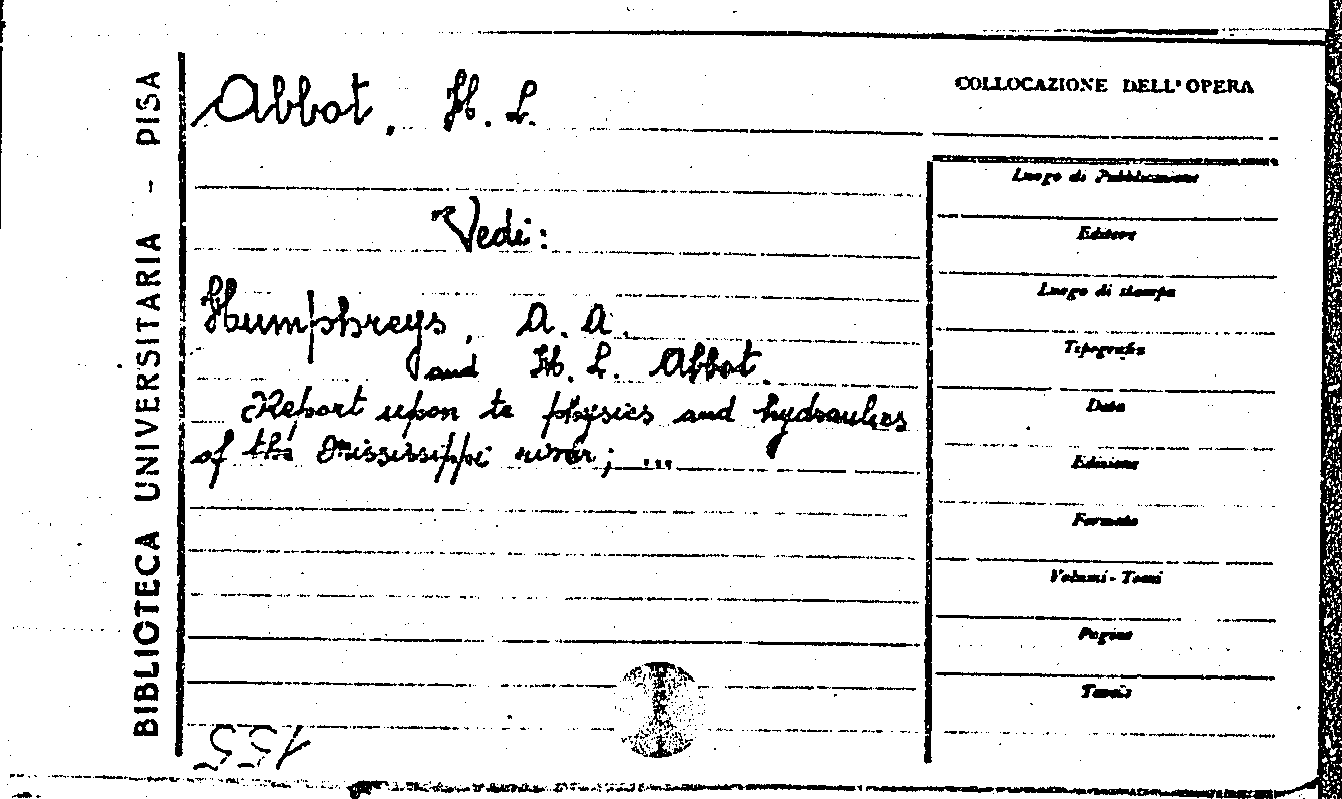 BIBLIOTECA UNIVERSITARIA - PISA
Abbot, H. L.
Vedi:
Humphreys, A. A.
and H. L. Abbot.
Report upon te physics and hydraulics
of the Mississippi river; ...
COLLOCAZIONE DELL'OPERA
Luogo di Pubblicazione
Editore
Luogo di stampa
Tipografia
Data
Edizione
Formato
Volumi - Tomi
Pagine
Tavole